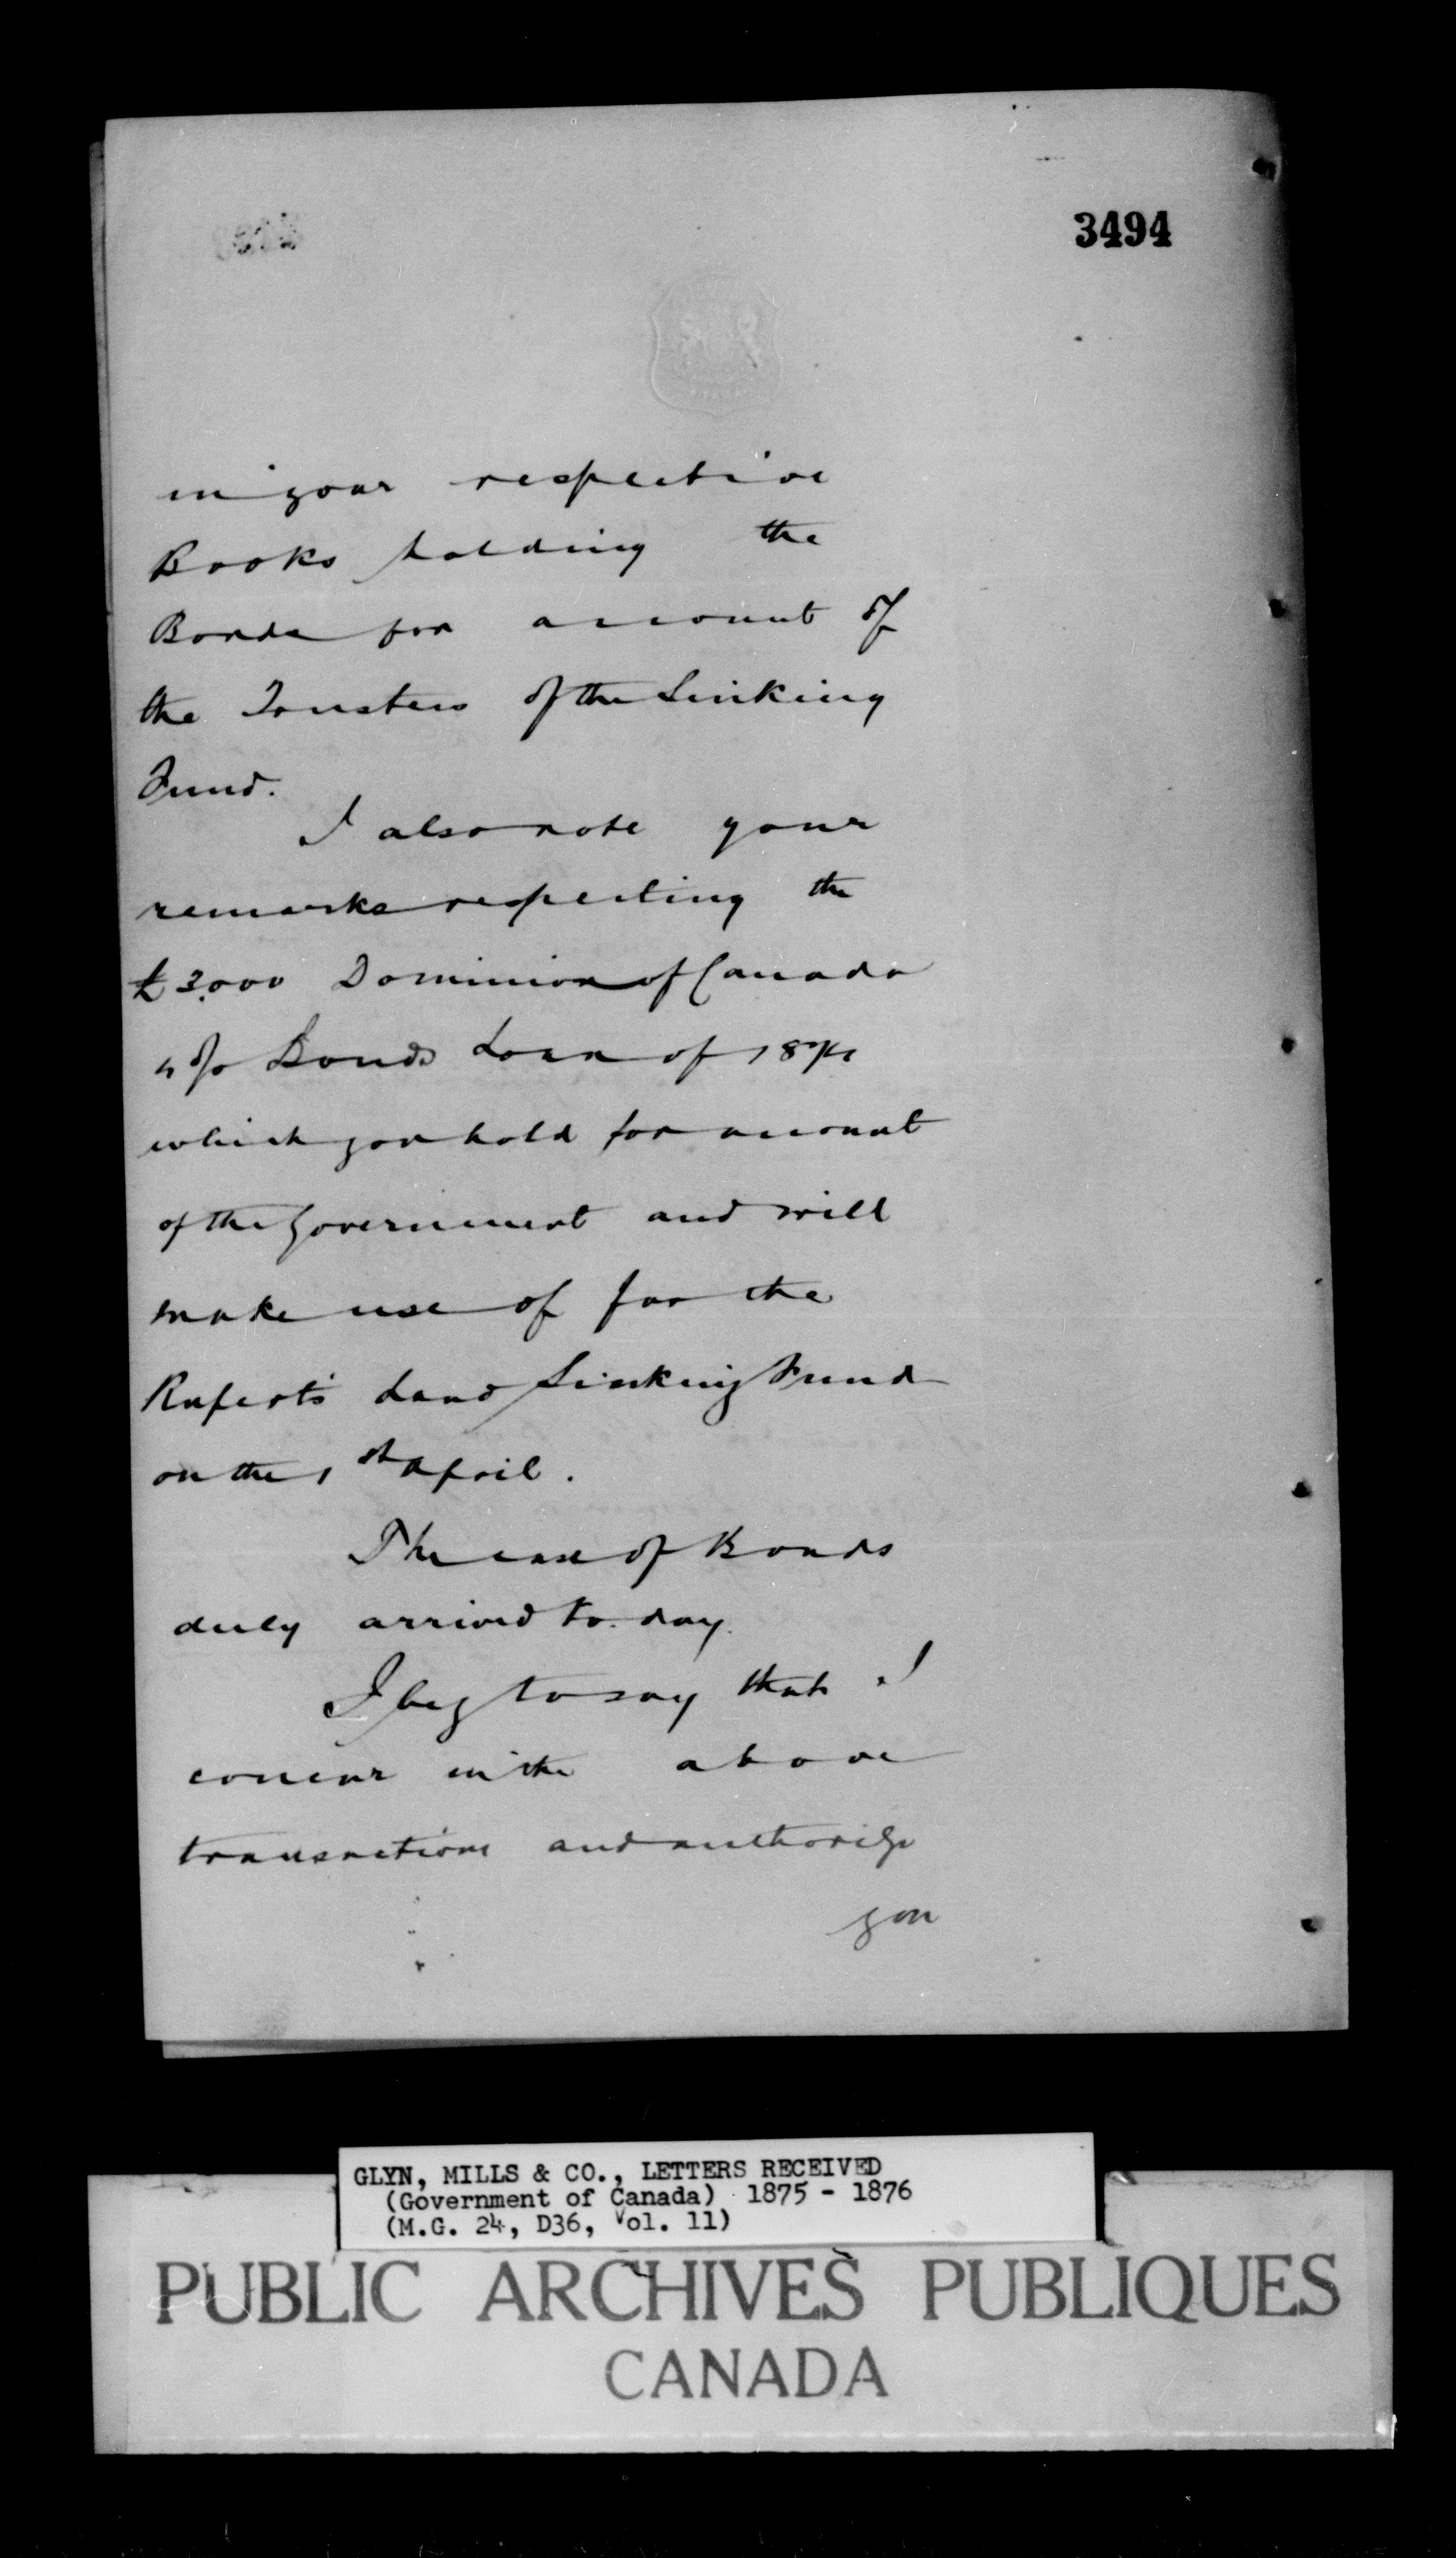 3494
in your respective
Books holding the
Bonds for account of
the Trustees of the Sinking
Fund.
I also note your
remarks respecting the
£3,000 Dominion of Canada
4 % Bonds Loan of 1874
which you hold for account
of the Government and will
make use of for the
Rupert's Land Sinking Fund
on the 1st April.
The case of Bonds
duly arrived to-day.
I beg to say that I
concur in the above
transactions and authorize
you
GLYN, MILLS & CO., LETTERS RECEIVED
(Government of Canada) 1875 - 1876
(M.G. 24, D36, Vol. 11)
PUBLIC ARCHIVES PUBLIQUES
CANADA